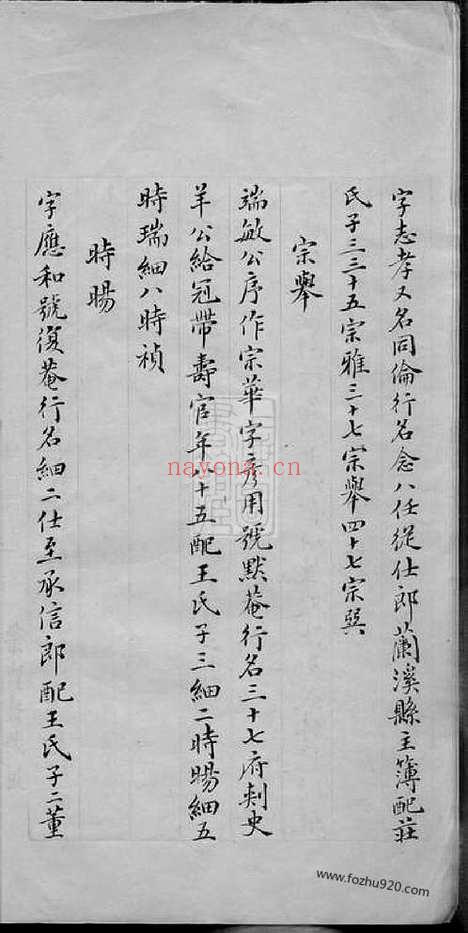 字志孝又名同倫行名念八任從仕郎蘭溪縣主簿配莊
氏子三三十五宗雅三十七宗舉四十七宗巽
宗舉
端敏公序作宗華字彥用號默菴行名三十七府刺史
羊公給冠帶壽官年八十五配王氏子三細二時暘細五
時瑞細八時禎
時暘
字應和號復菴行名細二仕至承信郎配王氏子二董
nayona.cn
www.fozhu920.com